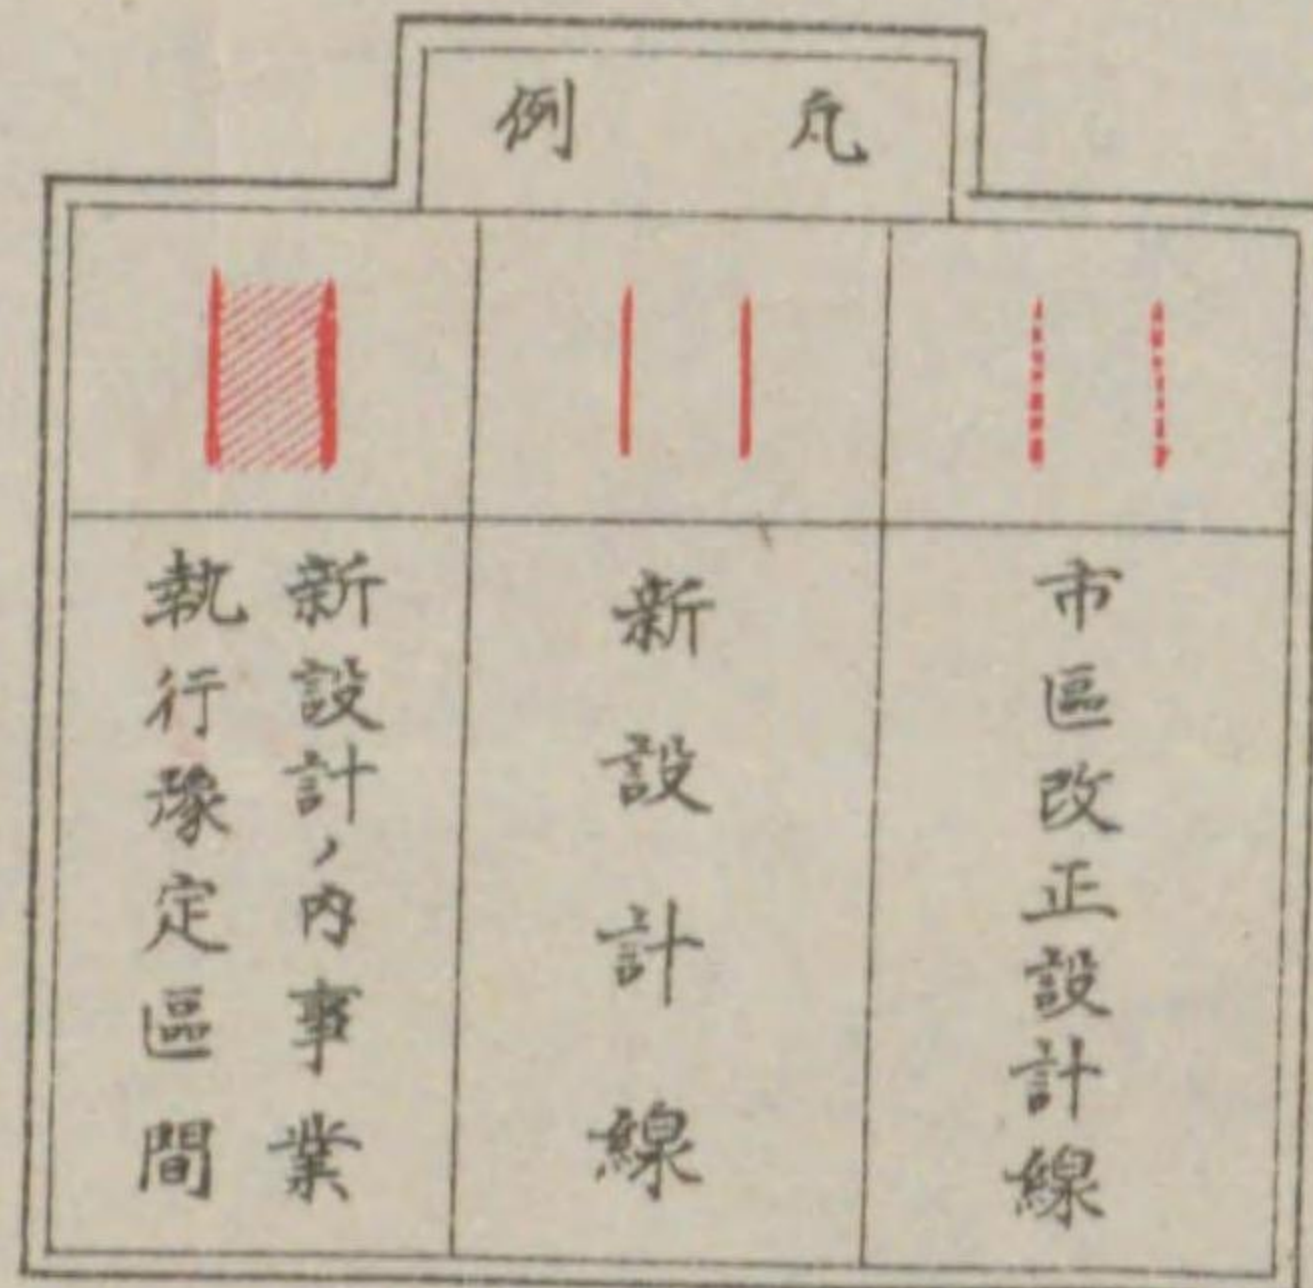 凡例
市區改正設計線
新設計線
新設計ノ內事業
執行豫定區間